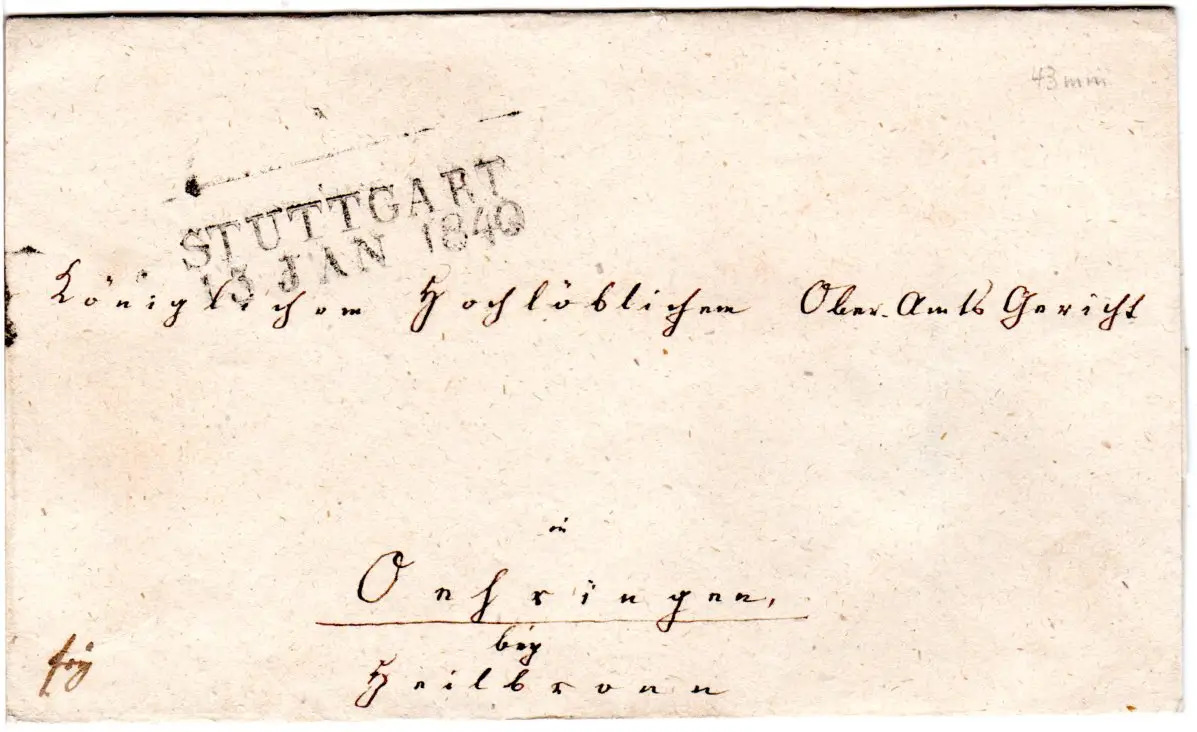 43 mm
STUTTGART
13 JAN 1840
Königlichem Hochlöblichem Ober-Amts Gericht
in
Oehringen,
bey
Heilbronn
frey